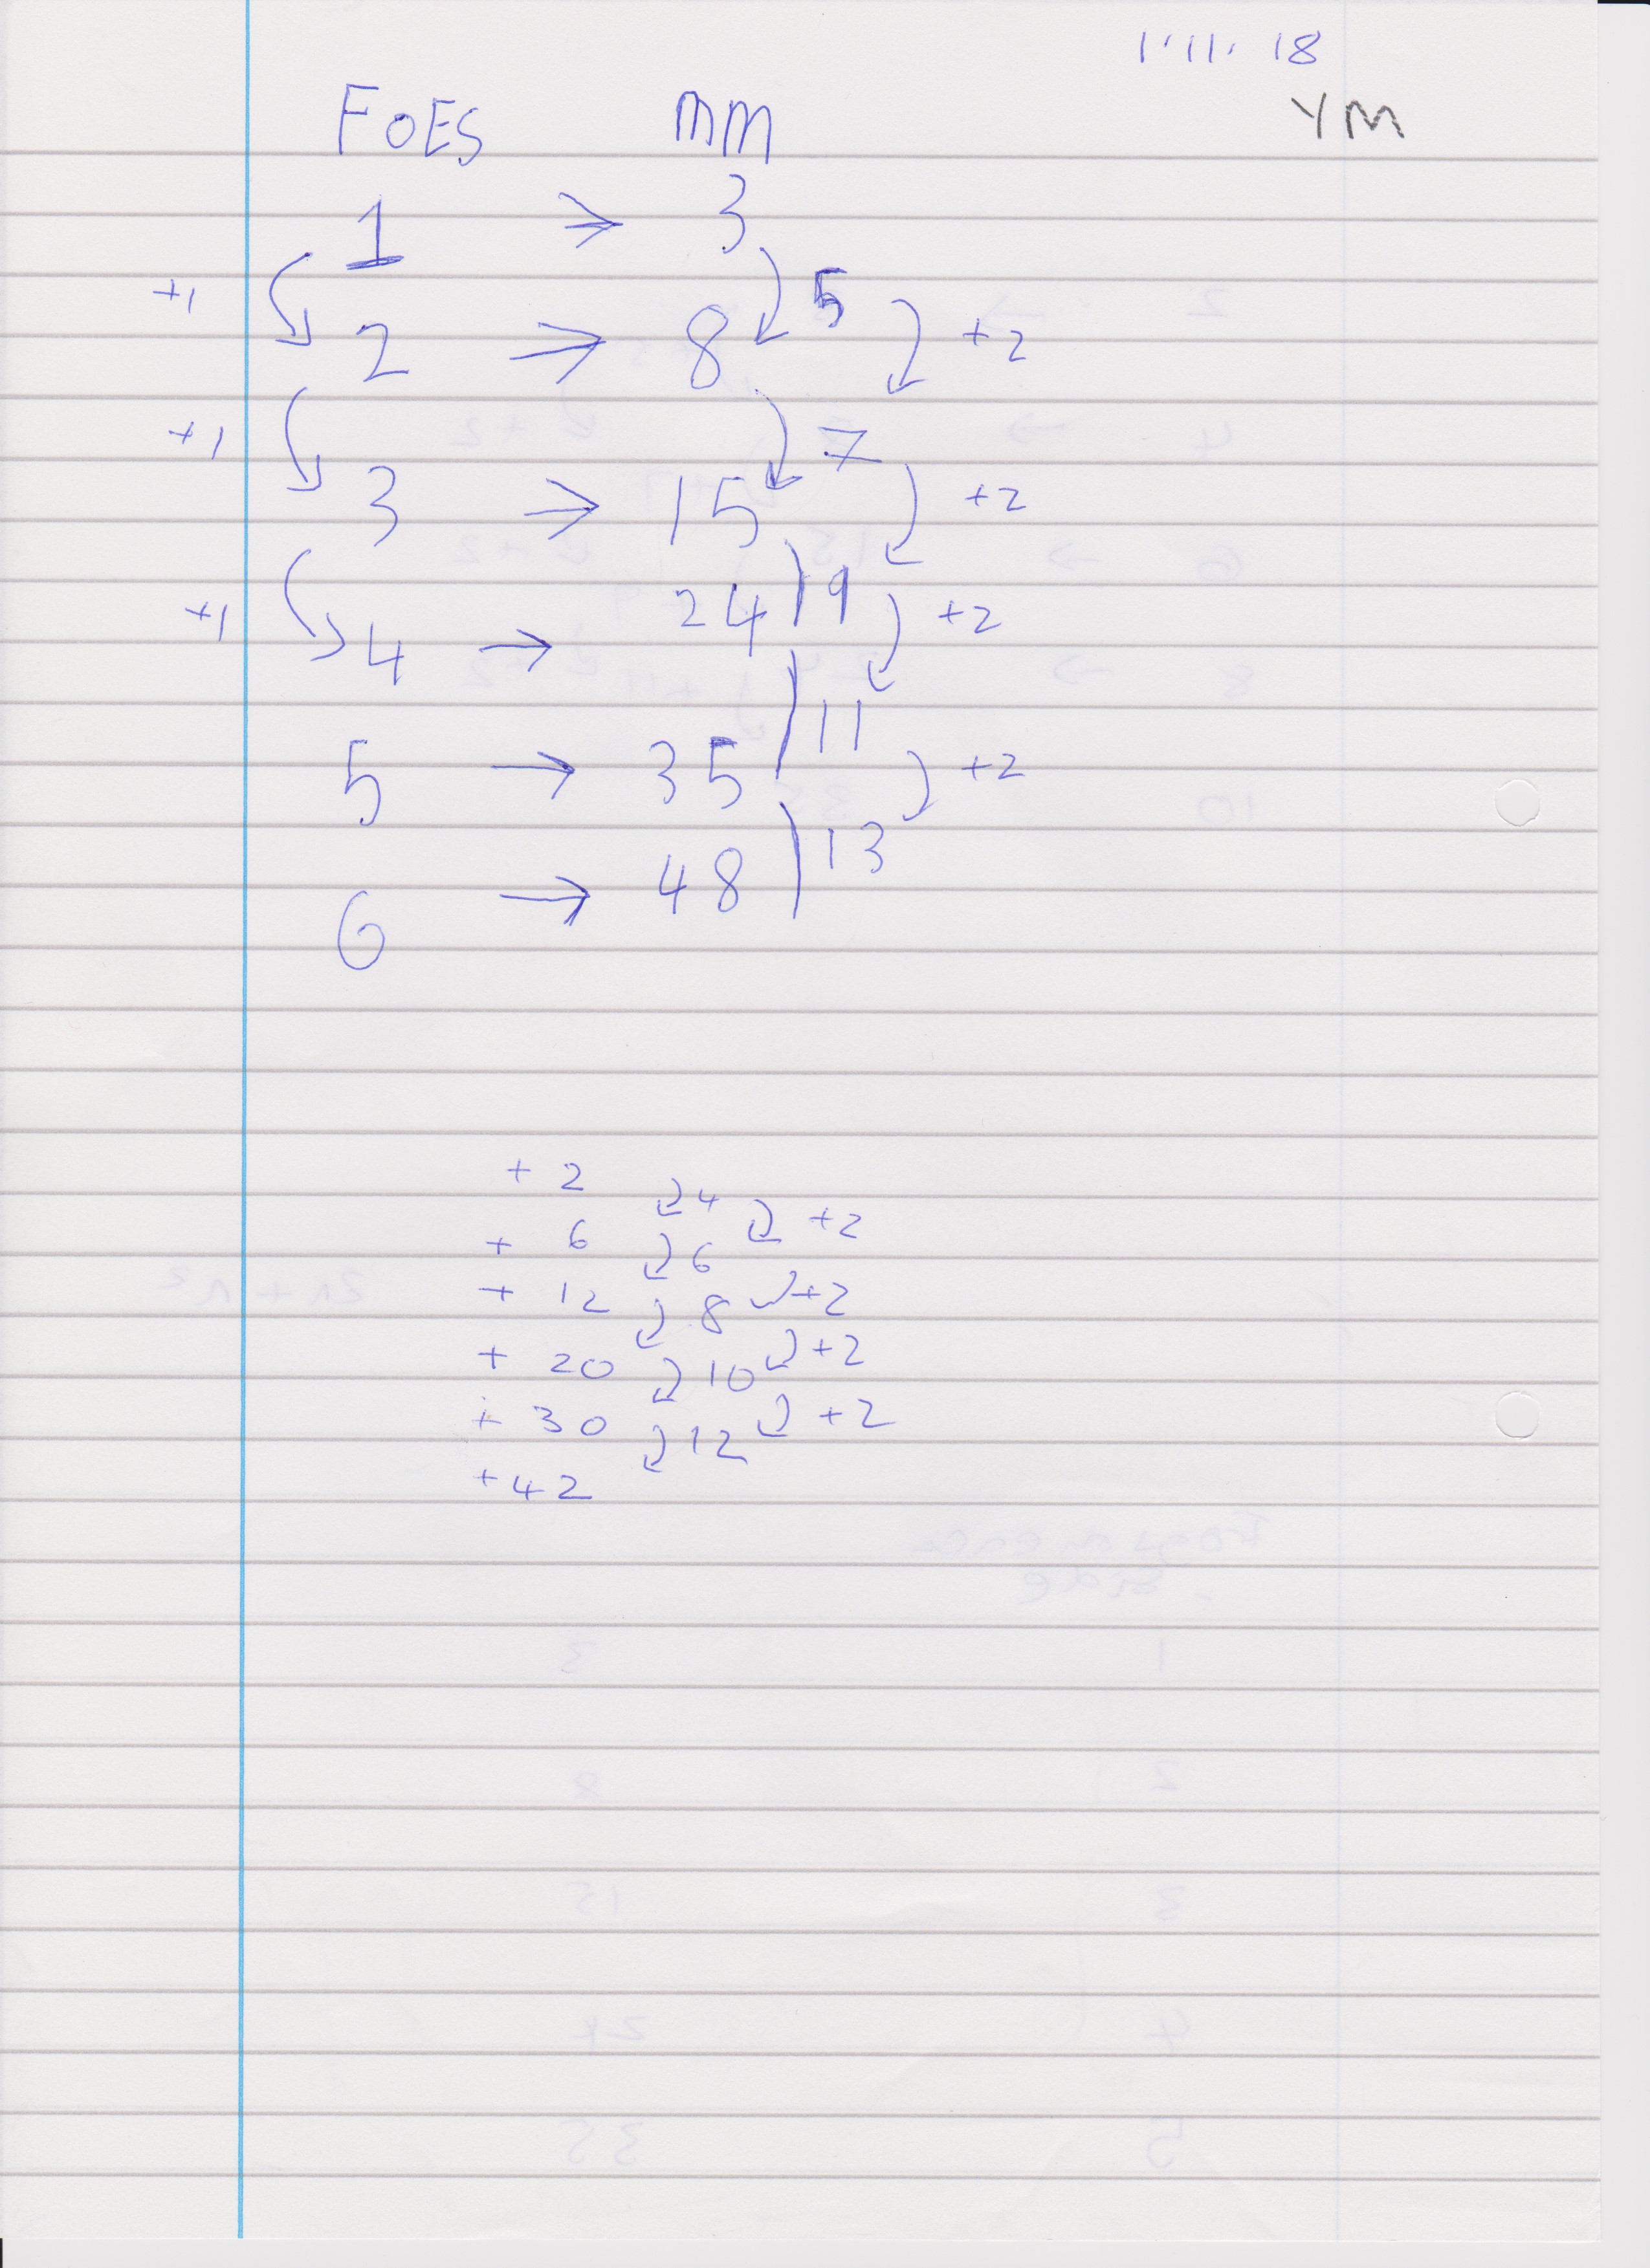 1.11.18
YM
FOES MM
1 → 3
+1 5 +2
2 → 8
+1 7 +2
3 → 15
+1 24 9 +2
4 →
11
5 → 35 +2
13
6 → 48
+ 2
4 +2
+ 6
6
+ 12 8 +2
+ 20 10 +2
+ 30 +2
12
+ 42